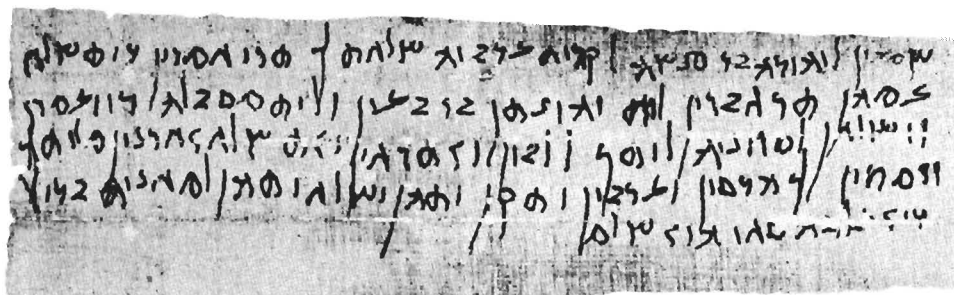 שמעון ליהודה בר מנשה לקרית ערביה שלחת לך תרי חמרין די תשלח
עמהן תרי גברין לות יהונתן בר בעין ולות מסבלה די יעמרן
וישלחן למחניה לותך ללבין ואתרגין ואת שלח אחרנין מלותך
וימטון לך הדסין וערבין ותקן יתהן ושלח יתהן למחניה בדיל
שלם